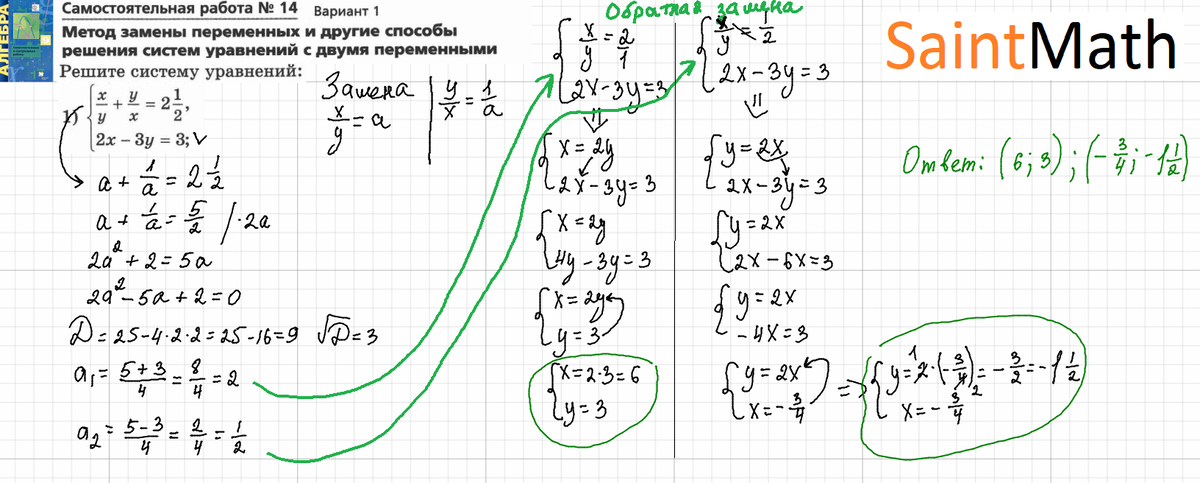 АЛГЕБРА
Самостоятельная работа № 14 Вариант 1
Метод замены переменных и другие способы
решения систем уравнений с двумя переменными
Решите систему уравнений:
1) { x/y + y/x = 2 1/2,
2x – 3y = 3; V
a + 1/a = 2 1/2
a + 1/a = 5/2 / · 2a
2a² + 2 = 5a
2a² - 5a + 2 = 0
D = 25 - 4 · 2 · 2 = 25 - 16 = 9 √D = 3
a₁ = 5+3/4 = 8/4 = 2
a₂ = 5-3/4 = 2/4 = 1/2
Замена
x/y = a | y/x = 1/a
Обратная замена
{ x/y = 2/1
2x - 3y = 3
{ x = 2y
2x - 3y = 3
{ x = 2y
4y - 3y = 3
{ x = 2y
y = 3
{ x = 2·3 = 6
y = 3
{ x/y = 1/2
2x - 3y = 3
{ y = 2x
2x - 3y = 3
{ y = 2x
2x - 6x = 3
{ y = 2x
- 4x = 3
{ y = 2x
x = - 3/4
=> { y = 2 · (- 3/4) = - 3/2 = - 1 1/2
x = - 3/4
SaintMath
Ответ: (6; 3); (- 3/4; - 1 1/2)